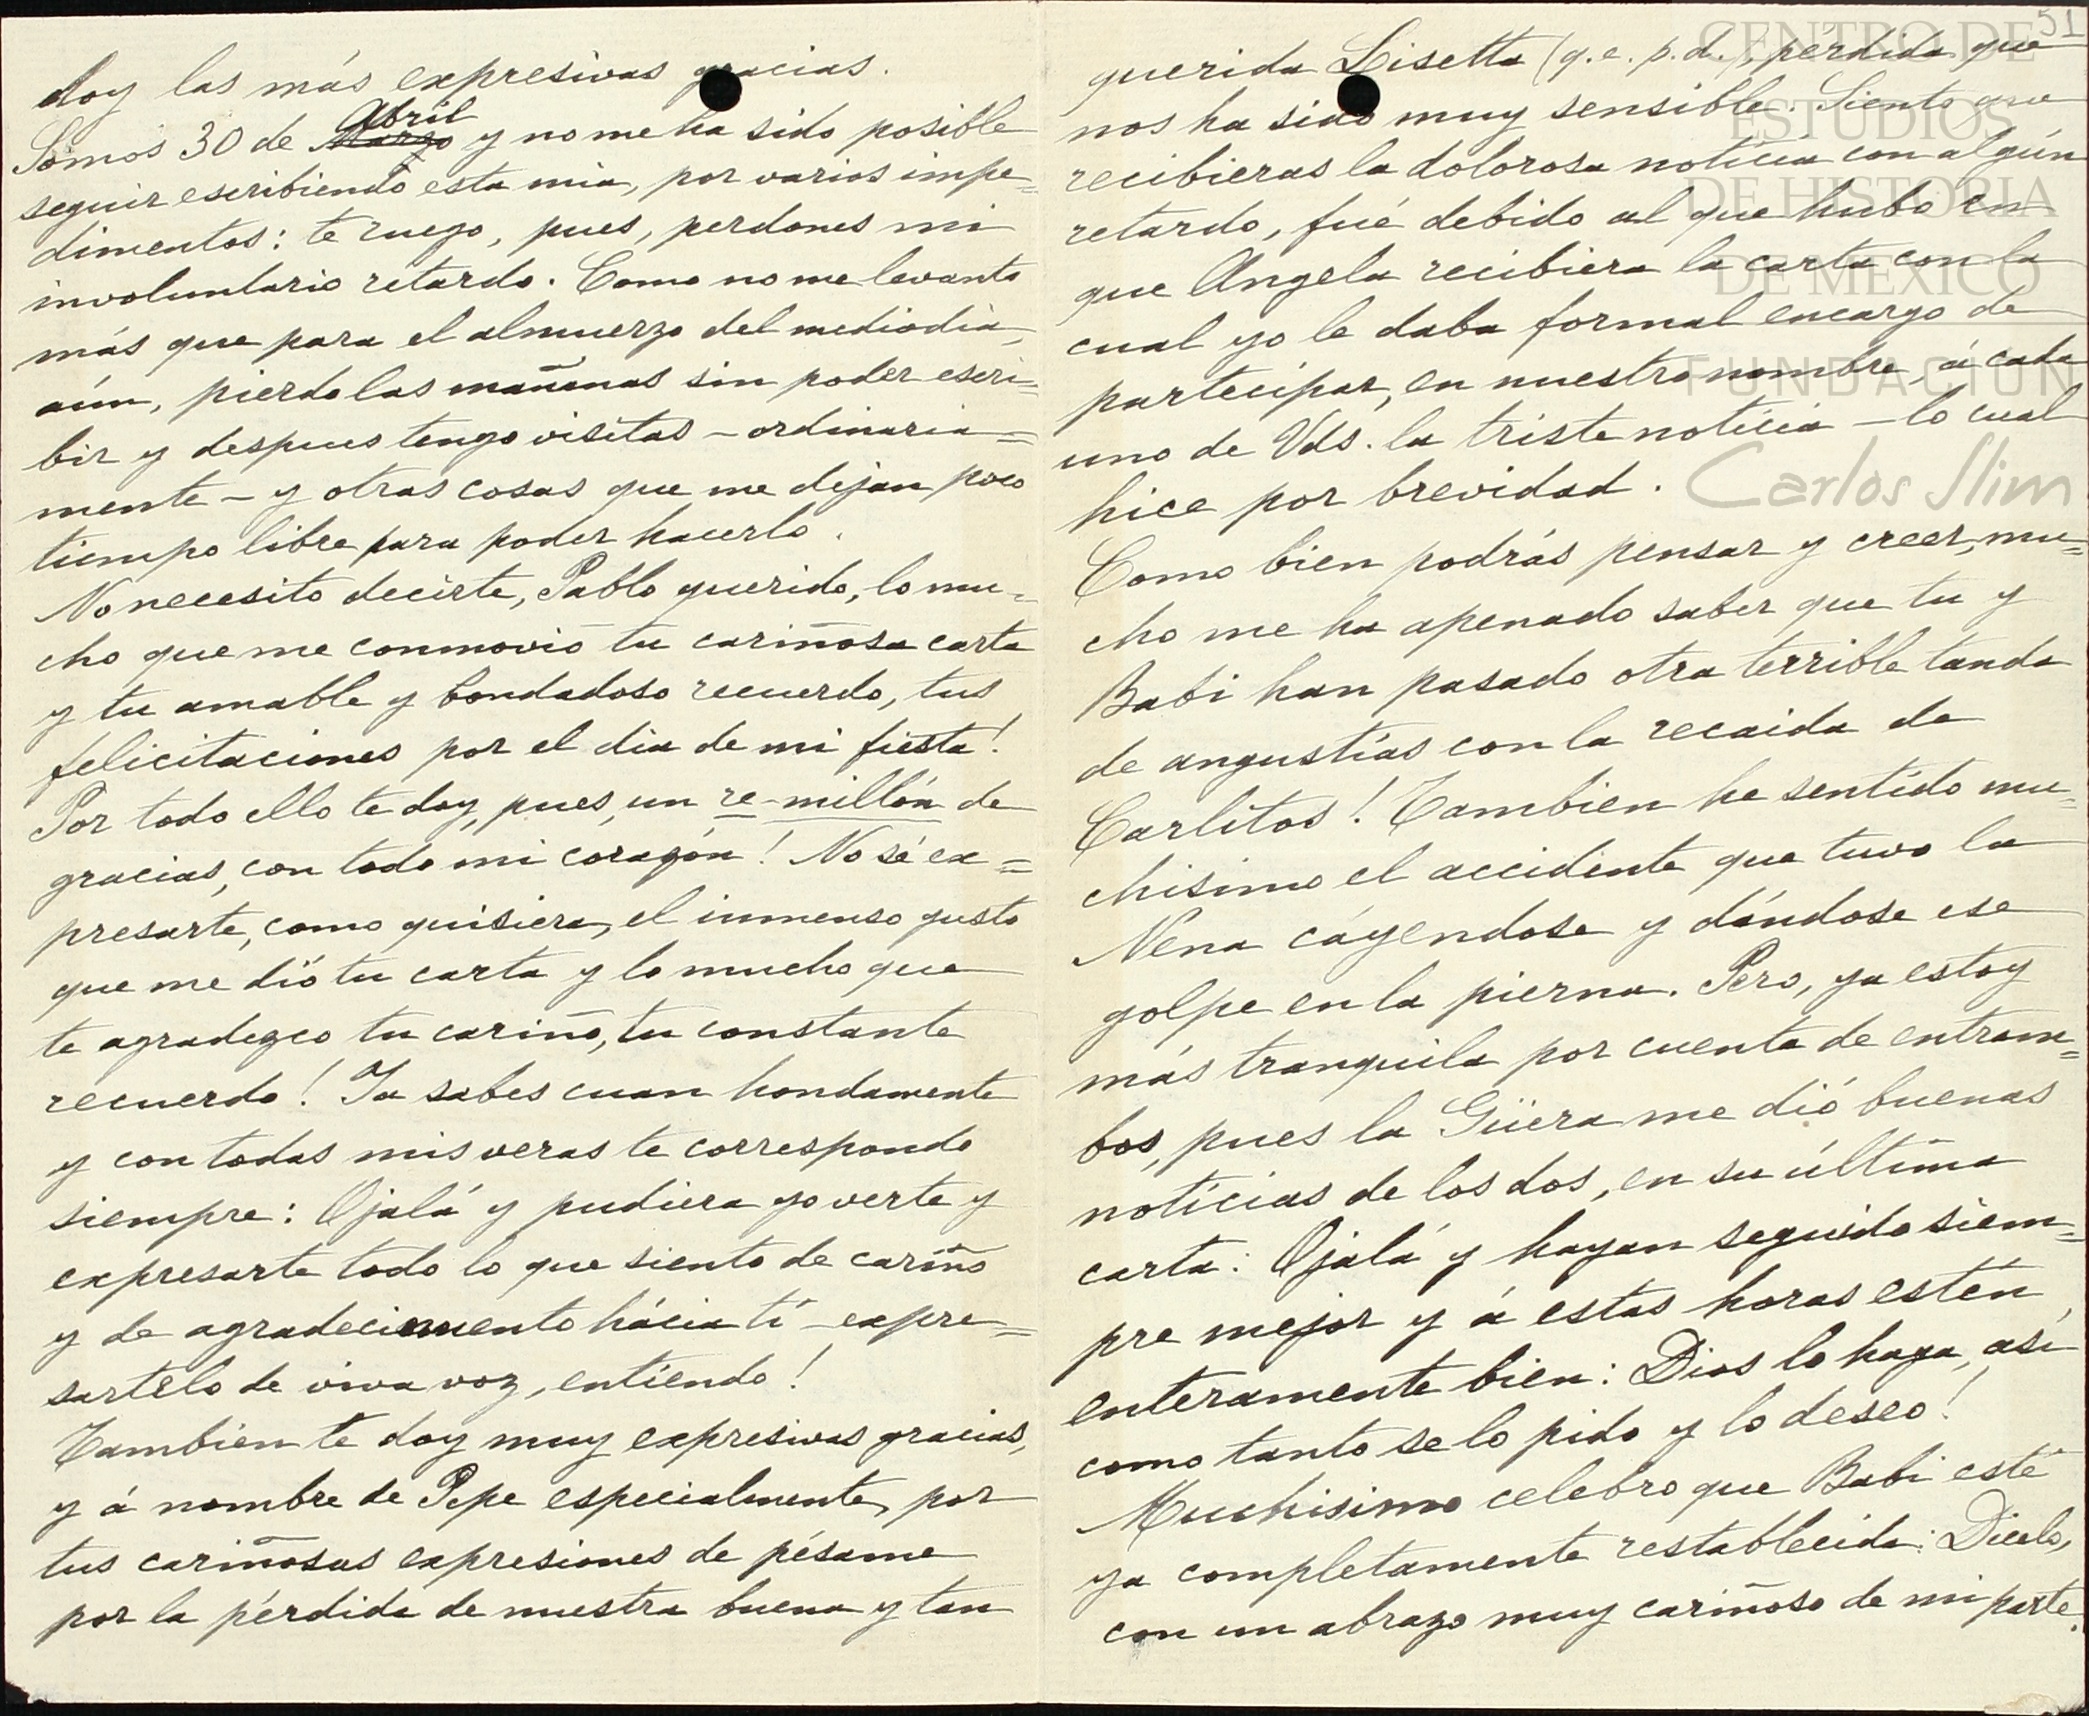 doy las más expresivas gracias.
Abril
Somos 30 de Marzo y no me ha sido posible
seguir escribiendo esta mia, por varios impe=
dimentos: te ruego, pues, perdones mi
involuntario retardo. Como no me levanto
más que para el almuerzo del mediodia,
aún, pierdo las mañanas sin poder escri=
bir y despues tengo visitas – ordinaria=
mente – y otras cosas que me dejan poco
tiempo libre para poder hacerlo.
No necesito decirte, Pablo querido, lo mu=
cho que me conmovió tu cariñosa carta
y tu amable y bondadoso recuerdo, tus
felicitaciones por el dia de mi fiesta!
Por todo ello te doy, pues, un re-millón de
gracias, con todo mi corazón! No sé ex=
presarte, como quisiera, el inmenso gusto
que me dió tu carta y lo mucho que
te agradezco tu cariño, tu constante
recuerdo! Ya sabes cuan hondamente
y con todas mis veras te correspondo
siempre: Ojalá y pudiera yo verte y
expresarte todo lo que siento de cariño
y de agradecimiento hácia tí – expre=
sartelo de viva voz, entiendo!
Tambien te doy muy expresivas gracias,
y á nombre de Pepe especialmente, por
tus cariñosas expresiones de pésame
por la pérdida de nuestra buena y tan
51
querida Lisetta (q.e.p.d.), perdida que
nos ha sido muy sensible. Siento que
recibieras la dolorosa notícia con algún
retardo, fué debido al que hubo en
que Angela recibiera la carta con la
cual yo le daba formal encargo de
partecipar, en nuestro nombre, á cada
uno de Vds. la triste notícia – lo cual
hice por brevidad.
Como bien podrás pensar y creer, mu=
cho me ha apenado saber que tu y
Babi han pasado otra terrible tanda
de angustías con la recaida de
Carlitos! Tambien he sentido mu=
chisimo el accidente que tuvo la
Nena cáyendose y dándose ese
golpe en la pierna. Pero, ya estoy
más tranquila por cuenta de entram=
bos, pues la Güera me dió buenas
notícias de los dos, en su última
carta: Ojalá y hayan seguido siem=
pre mejor y á estas horas estén
enteramente bien: Dios lo haga, así
como tanto se lo pido y lo deseo!
Muchisimo celebro que Babi esté
ya completamente restablecida: Dicelo,
con un abrazo muy cariñoso de mi parte.
CENTRO DE
ESTUDIOS
DE HISTORIA
DE MEXICO
FUNDACIÓN
Carlos Slim